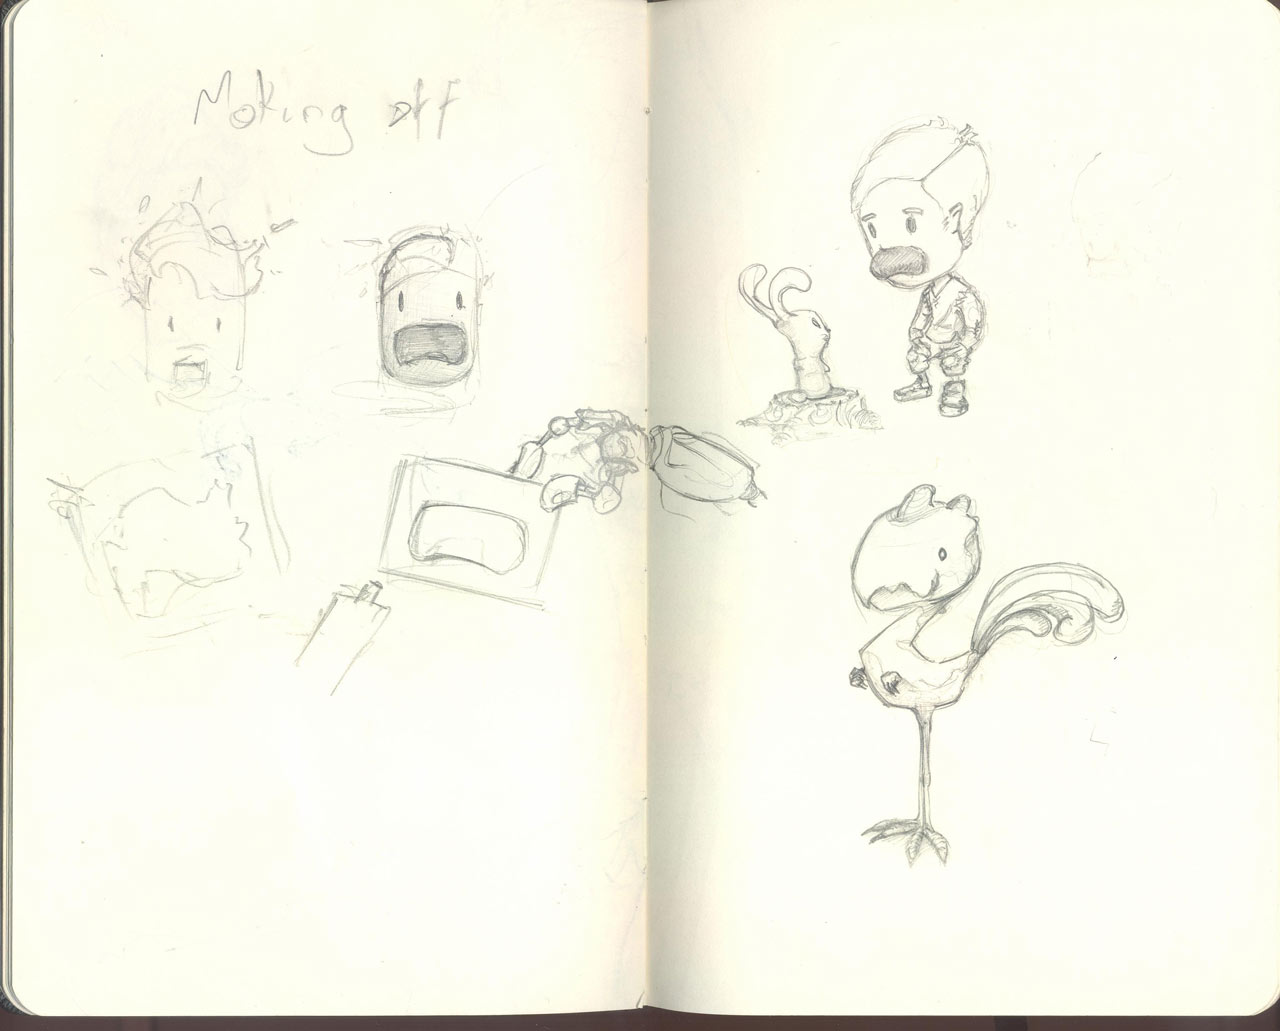 Making off